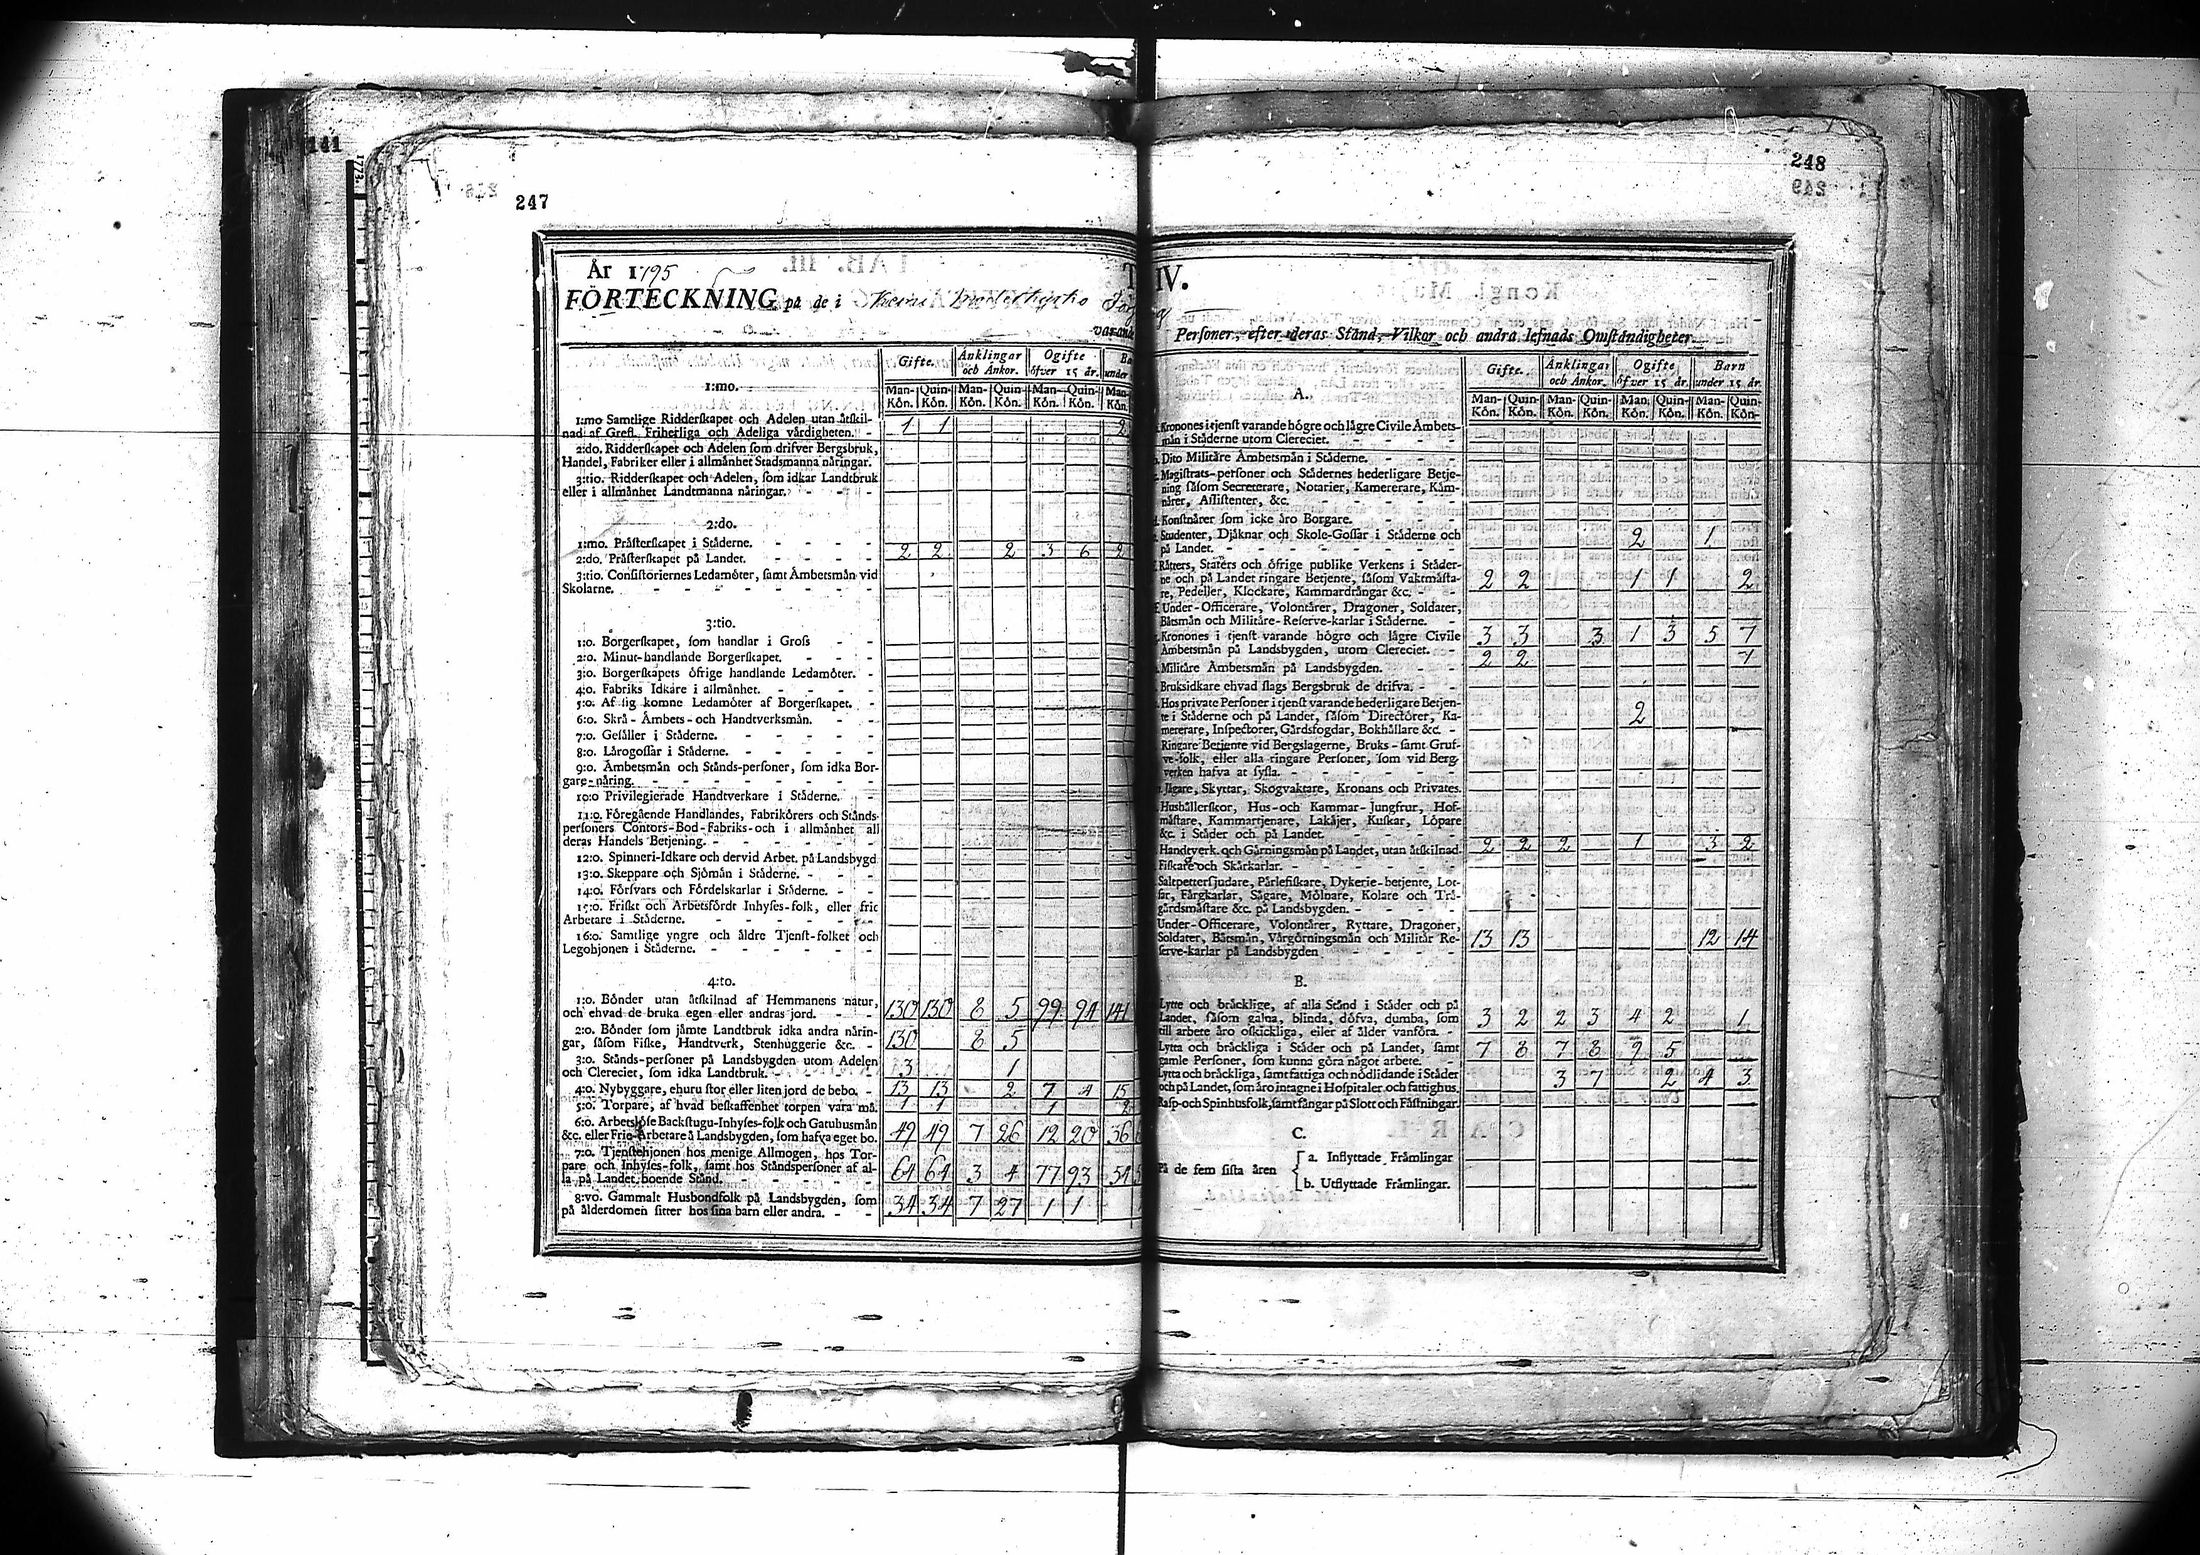 141
247
År 1795
FÖRTECKNING på de i
Gifte. Änklingar och Änkor. Ogifte öfver 15 år. under
Man-Kön. Quin-Kön. Man-Kön. Quin-Kön. Man-Kön. Quin-Kön. Man-Kön.
1:mo.
1:mo Samtlige Ridderskapet och Adelen utan åtskil-
nad af Grefl. Friherliga och Adeliga vårdigheten. 1 1 2
2:do. Ridderskapet och Adelen som drifver Bergsbruk,
Handel, Fabriker eller i allmånhet Stadsmanna nåringar.
3:tio. Ridderskapet och Adelen, som idkar Landtbruk
eller i allmånhet Landtmanna nåringar. - - -
2:do.
1:mo. Pråsterskapet i Ståderne. - - - -
2:do. Pråsterskapet på Landet. - - - - 2 2 2 3 6 2
3:tio. Consistoriernes Ledamöter, samt Åmbetsmån vid
Skolarne. - - - - - - -
3:tio.
1:o. Borgerskapet, som handlar i Gross - -
2:o. Minut-handlande Borgerskapet. - - -
3:o. Borgerskapets öfrige handlande Ledamöter. -
4:o. Fabriks Idkare i allmånhet. - - - -
5:o. Af sig komne Ledamöter af Borgerskapet. -
6:o. Skrå-Åmbets-och Handtverksmån. - -
7:o. Gesåller i Ståderne. - - - - -
8:o. Lårogossar i Ståderne. - - - - -
9:o. Åmbetsmån och Stånds-personer, som idka Bor-
gare-nåring. - - - - - - -
10:o Privilegierade Handtverkare i Ståderne. -
11:o. Föregående Handlandes, Fabrikörers och Stånds-
personers Contors-Bod-Fabriks-och i allmånhet all
deras Handels Betjening. - - - - -
12:o. Spinneri-Idkare och dervid Arbet. på Landsbygd
13:o. Skeppare och Sjömån i Ståderne. - - -
14:o. Försvars och Fördelskarlar i Ståderne. - -
15:o. Friskt och Arbetsfördt Inhyses-folk, eller frie
Arbetare i Ståderne. - - - - -
16:o. Samtlige yngre och åldre Tjenst-folket och
Legohjonen i Ståderne. - - - - -
4:to.
1:o. Bönder utan åtskilnad af Hemmanens natur,
och ehvad de bruka egen eller andras jord. - - 130 130 8 5 99 94 141
2:o. Bönder som jåmte Landtbruk idka andra nårin-
gar, såsom Fiske, Handtverk, Stenhuggerie &c. - 130 8 5
3:o. Stånds-personer på Landsbygden utom Adelen
och Clereciet, som idka Landtbruk. - - - 3 1
4:o. Nybyggare, ehuru stor eller liten jord de bebo. - 13 13 2 7 4 15
5:o. Torpare, af hvad beskaffenhet torpen vara må. 1 1 1 2
6:o. Arbetslöse Backstugu-Inhyses-folk och Gatuhusmån
&c. eller Frie-Arbetare å Landsbygden, som hafva eget bo. 49 49 7 26 12 20 36
7:o. Tjenstehjonen hos menige Allmogen, hos Tor-
pare och Inhyses-folk, samt hos Ståndspersoner af al-
la på Landet boende Stånd. - - - - - 64 64 3 4 77 93 54
8:vo. Gammalt Husbondfolk på Landsbygden, som
på ålderdomen sitter hos sina barn eller andra. - - 34 34 7 27 1 1
248
IV.
Personer, efter deras Stånd, Vilkor och andra lefnads Omståndigheter
Gifte. Änklingar och Änkor. Ogifte öfver 15 år. Barn under 15 år.
Man-Kön. Quin-Kön. Man-Kön. Quin-Kön. Man-Kön. Quin-Kön. Man-Kön. Quin-Kön.
A.
Kronones i tjenst varande högre och lågre Civile Åmbets-
mån i Ståderne utom Clereciet. - - - -
Dito Militåre Åmbetsmån i Ståderne. - - -
Magistrats-personer och Stådernes hederligare Betje-
ning såsom Secreterare, Notarier, Kamererare, Kåm-
nårer, Assistenter, &c. - - - - -
Konstnårer som icke åro Borgare. - - -
Studenter, Djåknar och Skole-Gossar i Ståderne och
på Landet. - - - - - - - 2 1
Råtters, Staters och öfrige publike Verkens i Ståder-
ne och på Landet ringare Betjente, såsom Vaktmåsta-
re, Pedeller, Klockare, Kammardrångar &c. - - 2 2 1 1 2
Under-Officerare, Volontårer, Dragoner, Soldater,
Båtsmån och Militåre-Reserve-karlar i Ståderne. -
Kronones i tjenst varande högre och lågre Civile 3 3 3 1 3 5 7
Åmbetsmån på Landsbygden, utom Clereciet. - - 2 2 1
Militåre Åmbetsmån på Landsbygden. - - -
Bruksidkare ehvad slags Bergsbruk de drifva. - -
Hos private Personer i tjenst varande hederligare Betjen-
te i Ståderne och på Landet, såsom Directörer, Ka- 2
mererare, Inspectorer, Gårdsfogdar, Bokhållare &c. -
Ringare Betjente vid Bergslagerne, Bruks-samt Gruf-
ve-folk, eller alla ringare Personer, som vid Berg-
verken hafva at syssla. - - - - - -
Jågare, Skyttar, Skogvaktare, Kronans och Privates.
Hushållerskor, Hus-och Kammar-Jungfrur, Hof-
måstare, Kammartjenare, Lakåjer, Kuskar, Löpare
&c. i Ståder och på Landet. - - - -
Handtverk. och Gårningsmån på Landet, utan åtskilnad. 2 2 2 1 3 2
Fiskare och Skårkarlar. - - - - -
Saltpettersjudare, Pårlefiskare, Dykerie-betjente, Lot-
sar, Fårgkarlar, Sågare, Mölnare, Kolare och Trå-
gårdsmåstare &c. på Landsbygden. - - - -
Under-Officerare, Volontårer, Ryttare, Dragoner,
Soldater, Båtsmån, Vårgörningsmån och Militår Re- 13 13 12 14
serve-karlar på Landsbygden - - - -
B.
Lytte och bråcklige, af alla Stånd i Ståder och på
Landet, såsom galna, blinda, döfva, dumba, som 3 2 2 3 4 2 1
till arbete åro oskickliga, eller af ålder vanföra. -
Lytta och bråckliga i Ståder och på Landet, samt 7 8 7 8 9 5
gamle Personer, som kunna göra något arbete. -
Lytta och bråckliga, samt fattiga och nödlidande i Ståder 3 7 2 4 3
och på Landet, som åro intagne i Hospitaler och fattighus.
Rasp-och Spinhusfolk, samt fångar på Slott och Fåstningar.
C.
På de fem sista åren
a. Inflyttade Fråmlingar
b. Utflyttade Fråmlingar.